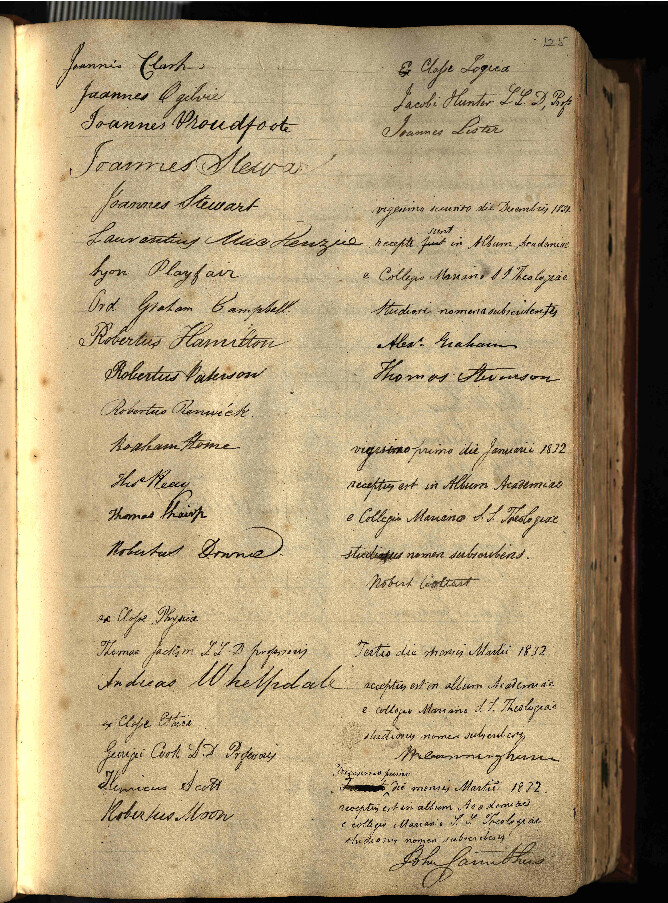 125
Joannis Clark
Joannes Ogilvie
Joannes Proudfoote
Joannes Stewar
Joannes Stewart
Laurentius MacKenzie
Lyon Playfair
Ord Graham Campbell.
Robertus Hamilton
Robertus Paterson
Robertus Renwick.
Roxham Home
Thos Reay
Thomas Thorp
Robertus Downie
ex Classe Physica
Thomae Jackson LLD professoris
Andreas Whelpdale
ex Classe Ethica
Georgii Cook D.D. Professoris
Henricus Scott
Robertus Moon
Ex Classe Logica
Jacobi Hunter L.L.D, Profs
Joannes Lister
vigesimo secundo die Decembris 1831
sunt
recepti in Album Academiae
e Collegio Mariano S S Theologiae
studiosi nomena subscribentes
Alexr. Graham
Thomas Stevenson
vigesimo primo die Januarii 1832
receptus est in Album Academiae
e Collegio Mariano S. S. Theologiae
studiosus nomen subscribens.
Robert
Tertio die mensis Martii 1832
receptus est in album Academiae
e collegio Mariano S. S. Theologiae
studiosus nomen subscribens
Wm Cunninghame
Vigesimo primo
die mensis Martii 1832
receptus est in album Academiae
e collegio Mariano S. S. Theologiae
studiosus nomen subscribens
John Carruthers